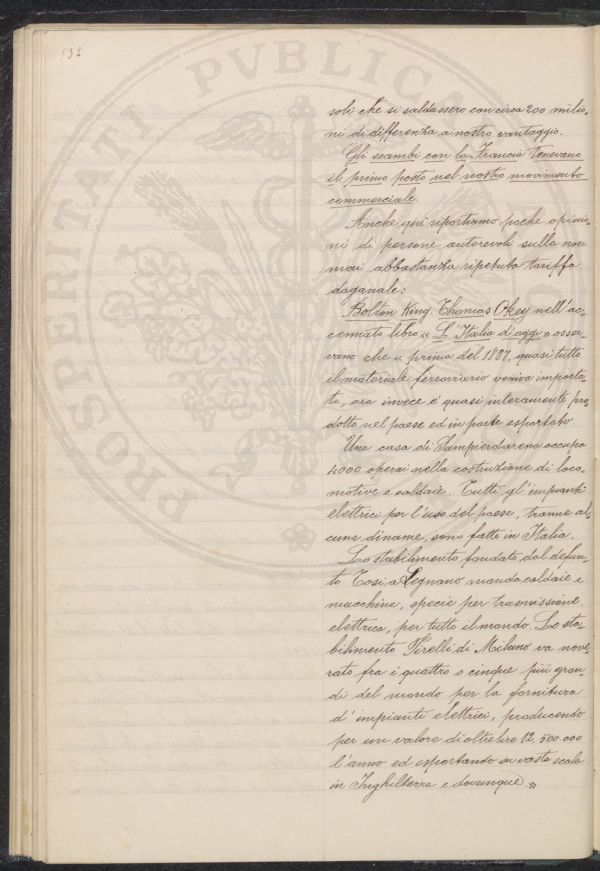 132
soli che si saldassero con circa 200 milio-
ni di differenza a nostro vantaggio.
Gli scambi con la Francia tenevano
il primo posto nel nostro movimento
commerciale.
Anche qui riportiamo poche opinio-
ni di persone autorevoli sulla non
mai abbastanza ripetuta tariffa
doganale:
Bolton King. Thomas Okey nell'ac-
cennato libro "L'Italia d'oggi" osser-
vano che "prima del 1887, quasi tutto
il materiale ferroviario veniva importa-
to, ora invece è quasi interamente pro-
dotto nel paese ed in parte esportato.
Una casa di Sampierdarena occupa
4000 operai nella costruzione di loco-
motive e caldaie. Tutti gl'impianti
elettrici per l'uso del paese, tranne al-
cune diname, sono fatte in Italia.
Lo stabilimento fondato dal defun-
to Tosi a Legnano manda caldaie e
macchine, specie per trasmissione
elettrica, per tutto il mondo. Lo sta-
bilimento Pirelli di Milano va nove-
rato fra i quattro o cinque più gran-
di del mondo per la fornitura
d'impianti elettrici, producendo
per un valore di oltre lire 12.500.000
l'anno ed esportando su vasta scala
in Inghilterra e dovunque."
PROSPERITATI PVBLICAE